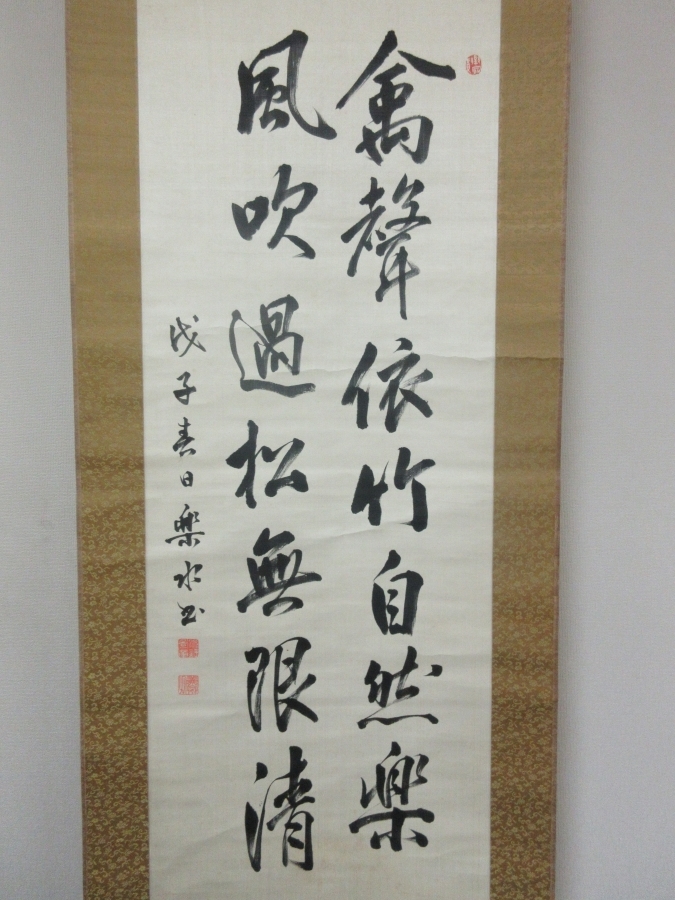 禽聲依竹自然樂
風吹過松無限清
戊子春日樂水書